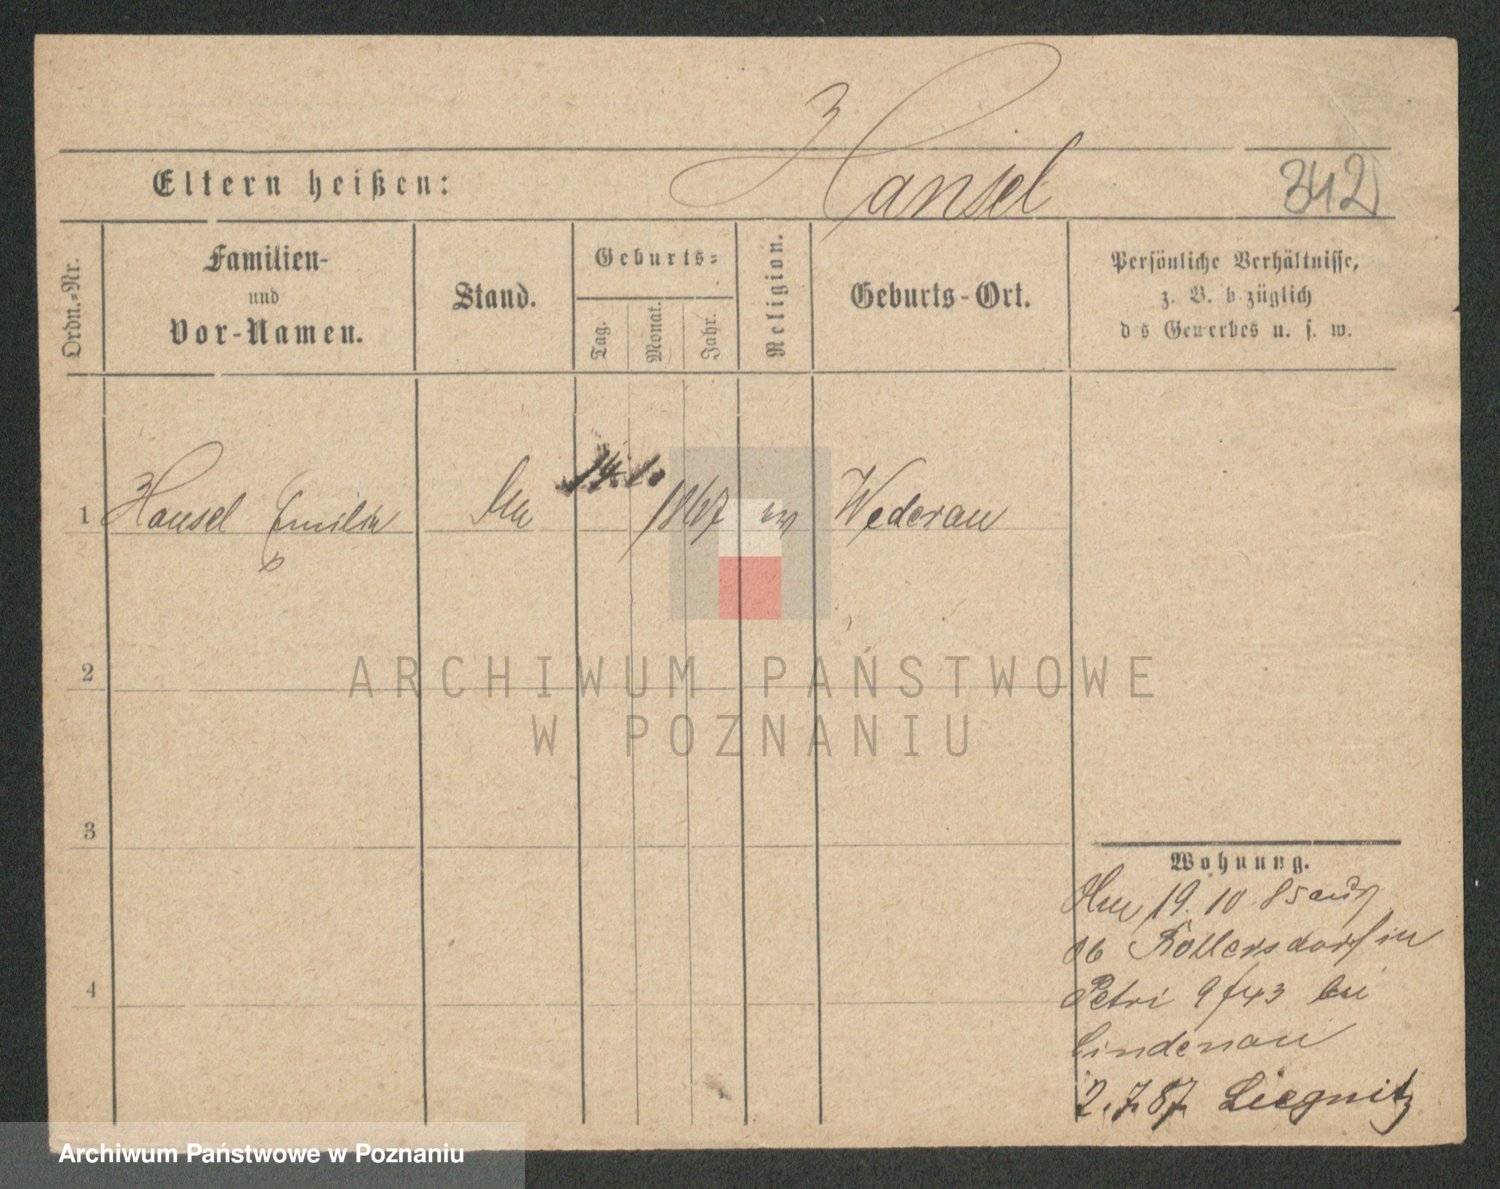 Hansel
Eltern heißen:
342
Ordn.-Nr.
Familien-
und
Vor-Namen.
Stand.
Geburts-
Tag.
Monat.
Jahr.
Religion.
Geburts-Ort.
Persönliche Verhältnisse,
z. B. b züglich
d s Gewerbes u. s. w.
1 Hansel Emilie 14. 1. 1867 ev Wederau
2
3
4
Wohnung.
19. 10 85 aus
in
Petri 9/43 bei
Lindenau
2.7.87 Liegnitz
ARCHIWUM PAŃSTWOWE
W POZNANIU
Archiwum Państwowe w Poznaniu